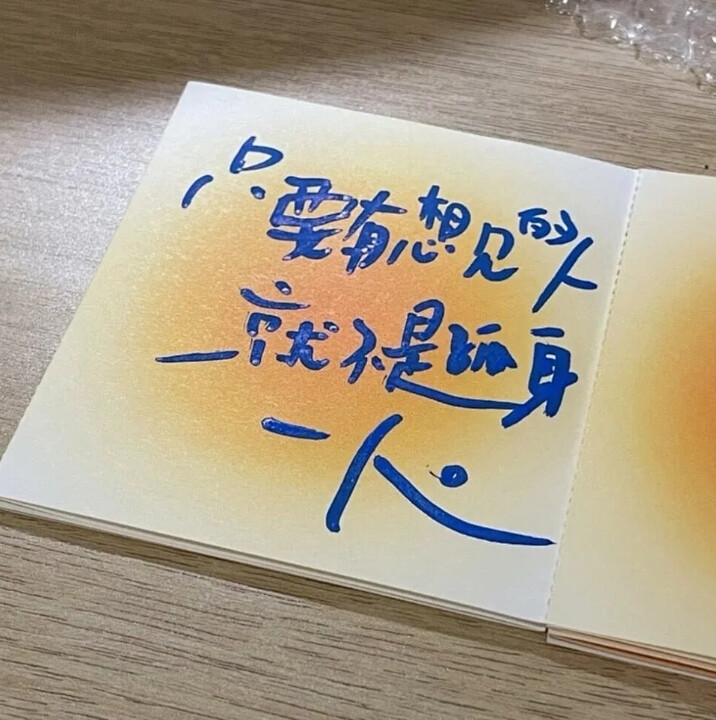 只要有想见的人
一就不是孤身
一人。